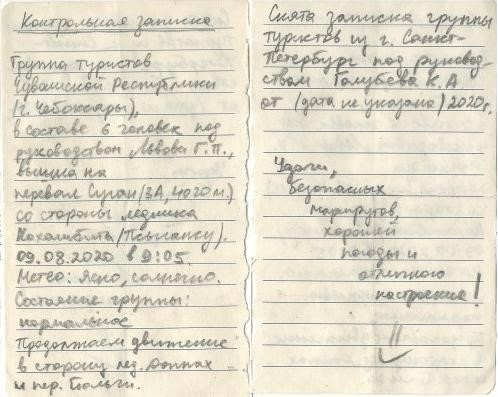 Контрольная записка
Группа туристов
Чувашской Республики
(г. Чебоксары),
в составе 6 человек под
руководством Львова Г.П.,
вышла на
перевал Суган (3А, 4020 м.)
со стороны ледника
(Псыгансу).
09.08.2020 в 9:05.
Метео: Ясно, солнечно.
Состояние группы:
нормальное
Продолжаем движение
в сторону лед. Доппах
и пер. Гюльчи.
Снята записка группы
туристов из г. Санкт-
Петербург под руковод-
ством Голубева К.А
от (дата не указана) 2020г.
Удачи,
безопасных
маршрутов,
хорошей
погоды и
отличного
настроения!